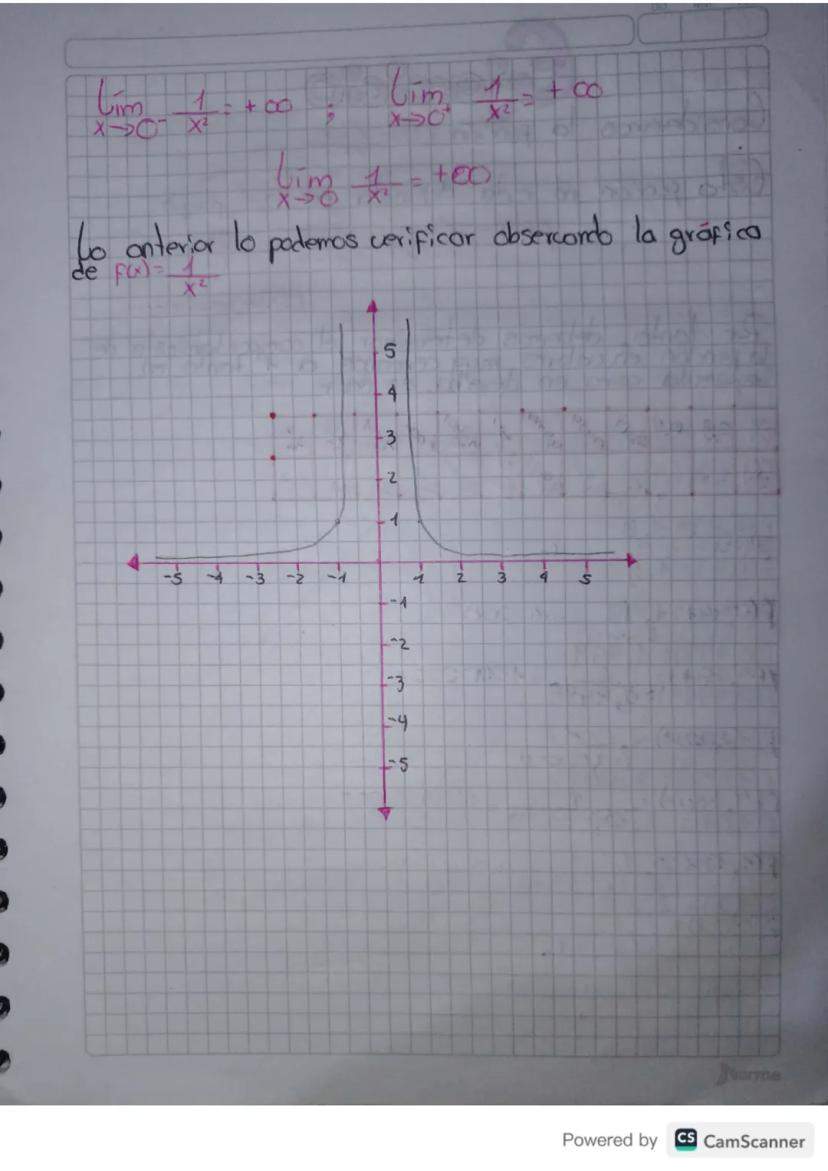 lim x→0⁻ 1/x² = +∞ ; lim x→0⁺ 1/x² = +∞
lim x→0 1/x² = +∞
Lo anterior lo podemos verificar obsercando la gráfica
de f(x) = 1/x²
5
4
3
2
1
-5 -4 -3 -2 -1 1 2 3 4 5
-1
-2
-3
-4
-5
Norma
Powered by CS CamScanner